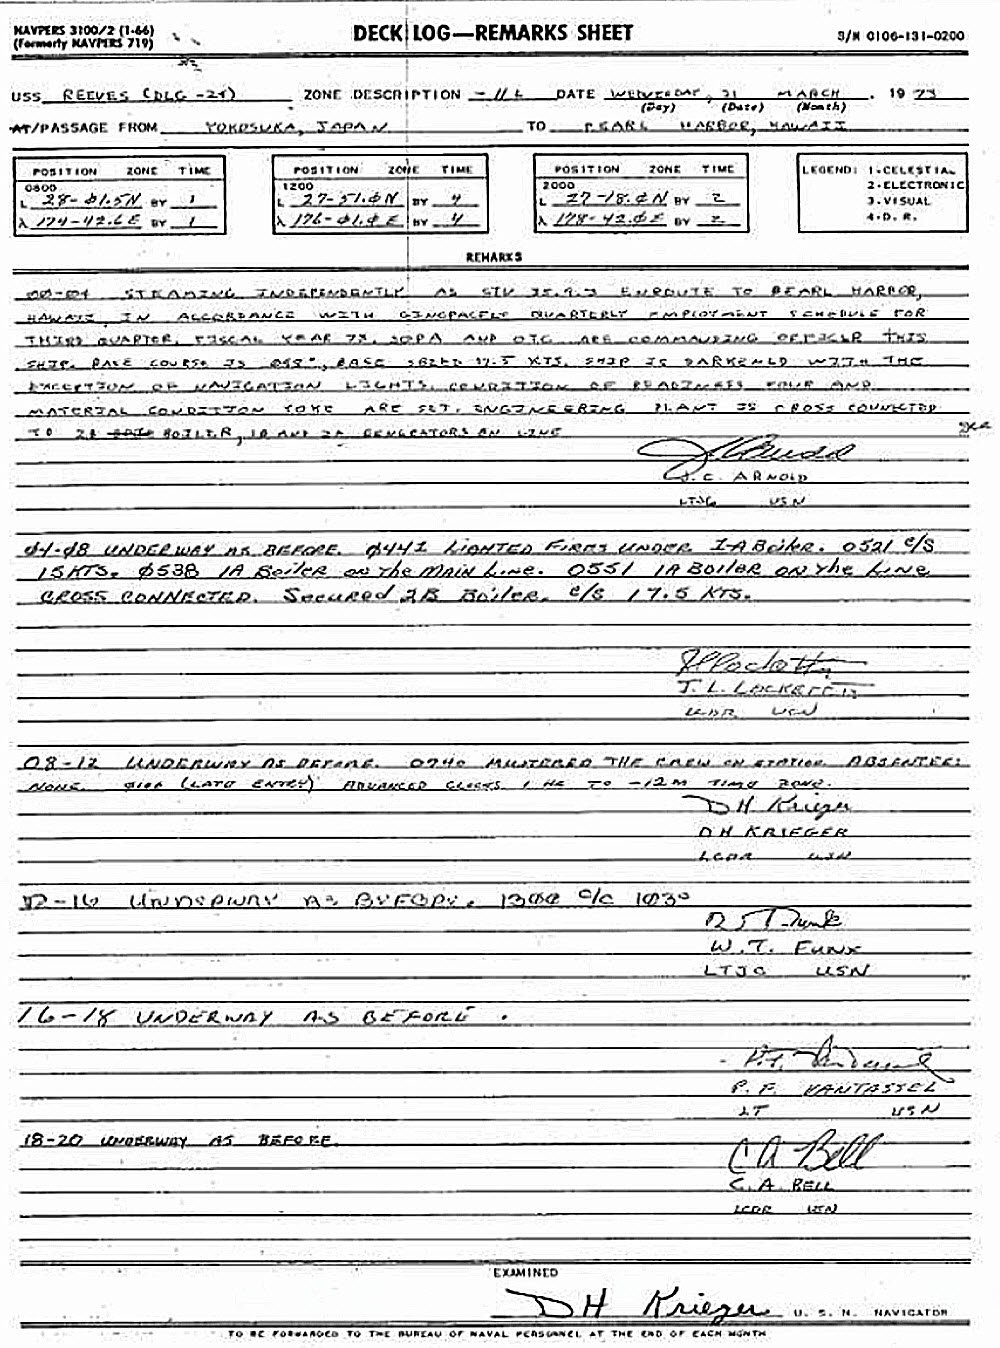 NAVPERS 3100/2 (1-66)
(Formerly NAVPERS 719)
DECK LOG—REMARKS SHEET
S/N 0106-131-0200
USS REEVES (DLG-24) ZONE DESCRIPTION -11 L DATE WEDNESDAY, 21 MARCH , 19 73
(Day) (Date) (Month)
AT/PASSAGE FROM YOKOSUKA, JAPAN TO PEARL HARBOR, HAWAII
POSITION ZONE TIME
0800
L 28-01.5N BY 1
λ 174-42.6E BY 1
POSITION ZONE TIME
1200
L 27-51.0N BY 4
λ 176-01.0E BY 4
POSITION ZONE TIME
2000
L 27-18.0N BY 2
λ 178-42.0E BY 2
LEGEND: 1-CELESTIAL
2-ELECTRONIC
3-VISUAL
4-D. R.
REMARKS
00-04 STEAMING INDEPENDENTLY AS ENROUTE TO PEARL HARBOR,
HAWAII, IN ACCORDANCE WITH CINCPACFLT QUARTERLY EMPLOYMENT SCHEDULE FOR
THIRD QUARTER, FISCAL YEAR 73. SOPA AND OTC ARE COMMANDING OFFICER THIS
SHIP. BASE COURSE IS 095°, BASE SPEED 17.5 KTS. SHIP IS DARKENED WITH THE
EXCEPTION OF NAVIGATION LIGHTS. CONDITION OF READINESS FOUR AND
MATERIAL CONDITION YOKE ARE SET. ENGINEERING PLANT IS CROSS CONNECTED
TO 2B BOILER, 1B AND 2A GENERATORS ON LINE
J. C. ARNOLD
LTJG USN
04-08 UNDERWAY AS BEFORE. 0441 LIGHTED FIRES UNDER 1-A Boiler. 0521 C/S
15 KTS. 0538 1A Boiler on the MAIN Line. 0551 1A BOILER ON the Line
CROSS CONNECTED. Secured 2B Boiler. C/S 17.5 KTS.
J. L. LOCKETT
LCDR USN
08-12 UNDERWAY AS BEFORE. 0740 MUSTERED THE CREW ON STATION. ABSENTEE:
NONE. (LATE ENTRY) ADVANCED CLOCKS 1 HR TO -12M TIME ZONE.
D H Krieger
D H KRIEGER
LCDR USN
12-16 UNDERWAY AS BEFORE. 1300 C/C 103°
W. T. FUNK
LTJG USN
16-18 UNDERWAY AS BEFORE.
P. F. VANTASSEL
LT USN
18-20 UNDERWAY AS BEFORE.
C A Bell
C. A. BELL
LCDR USN
EXAMINED
D H Krieger U. S. N. NAVIGATOR
TO BE FORWARDED TO THE BUREAU OF NAVAL PERSONNEL AT THE END OF EACH MONTH